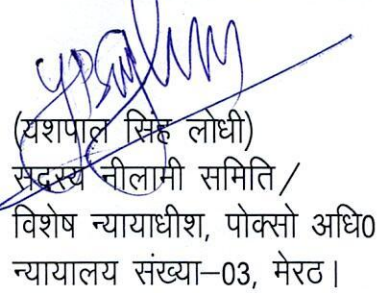 (यशपाल सिंह लोधी)
सदस्य नीलामी समिति/
विशेष न्यायाधीश, पोक्सो अधि0
न्यायालय संख्या–03, मेरठ।